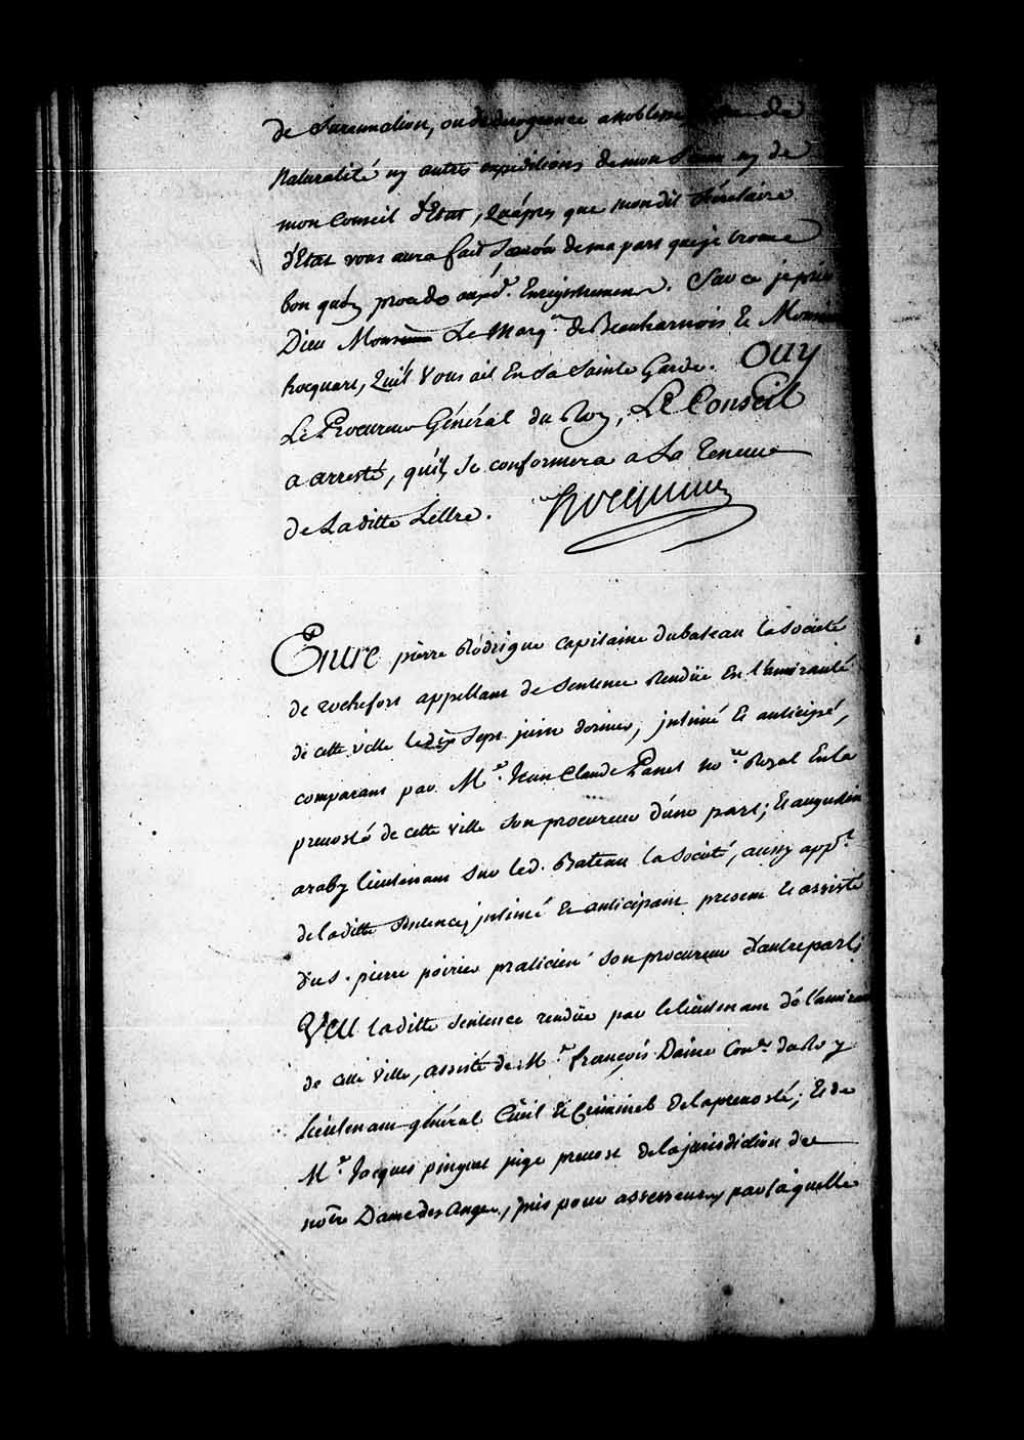 de Surannation, ou de derogeance a noblesse de
Naturalité ny autres expeditions de mon Sceau ny de
mon Conseil d'Etat, qu'aprés que mondit Secretaire
d'Etat vous aura fait Sçavoir de ma part que je trouve
bon qu'on procede auxd. Enregistremens. Sur ce je prie
Dieu Monsieur Le Marq.is de Beauharnois et Monsieur
hocquart, qu'il Vous ait En Sa Sainte Garde. OUY
Le Procureur Général du Roy, LE Conseil
a arresté, qu'il Se conformera a La Teneur
de Laditte Lettre. hocquart
Entre pierre Rodrigue capitaine du bateau la Société
de rochefort appellant de Sentence Rendüe En l'amirauté
de cette ville le dix Sept juin dernier, intimé et anticipé,
comparant par M.e Jean Claude Panet no.re Royal En la
prevosté de cette ville Son procureur d'une part; Et augustin
araby lieutenant Sur led. Bateau la Société, aussy app.t
de laditte Sentence, intimé et anticipant present et assisté
du S. pierre poirier praticien Son procureur d'autre part;
VEU laditte Sentence rendüe par le lieutenant de l'amirauté
de cette ville, assisté de M.e françois Daine Con.er du Roy
lieutenant général Civil et Criminel de la prevosté; Et de
M.e Jacques pinguet juge prevost de la jurisdiction de
notre Dame des anges, pris pour assesseurs, par laquelle